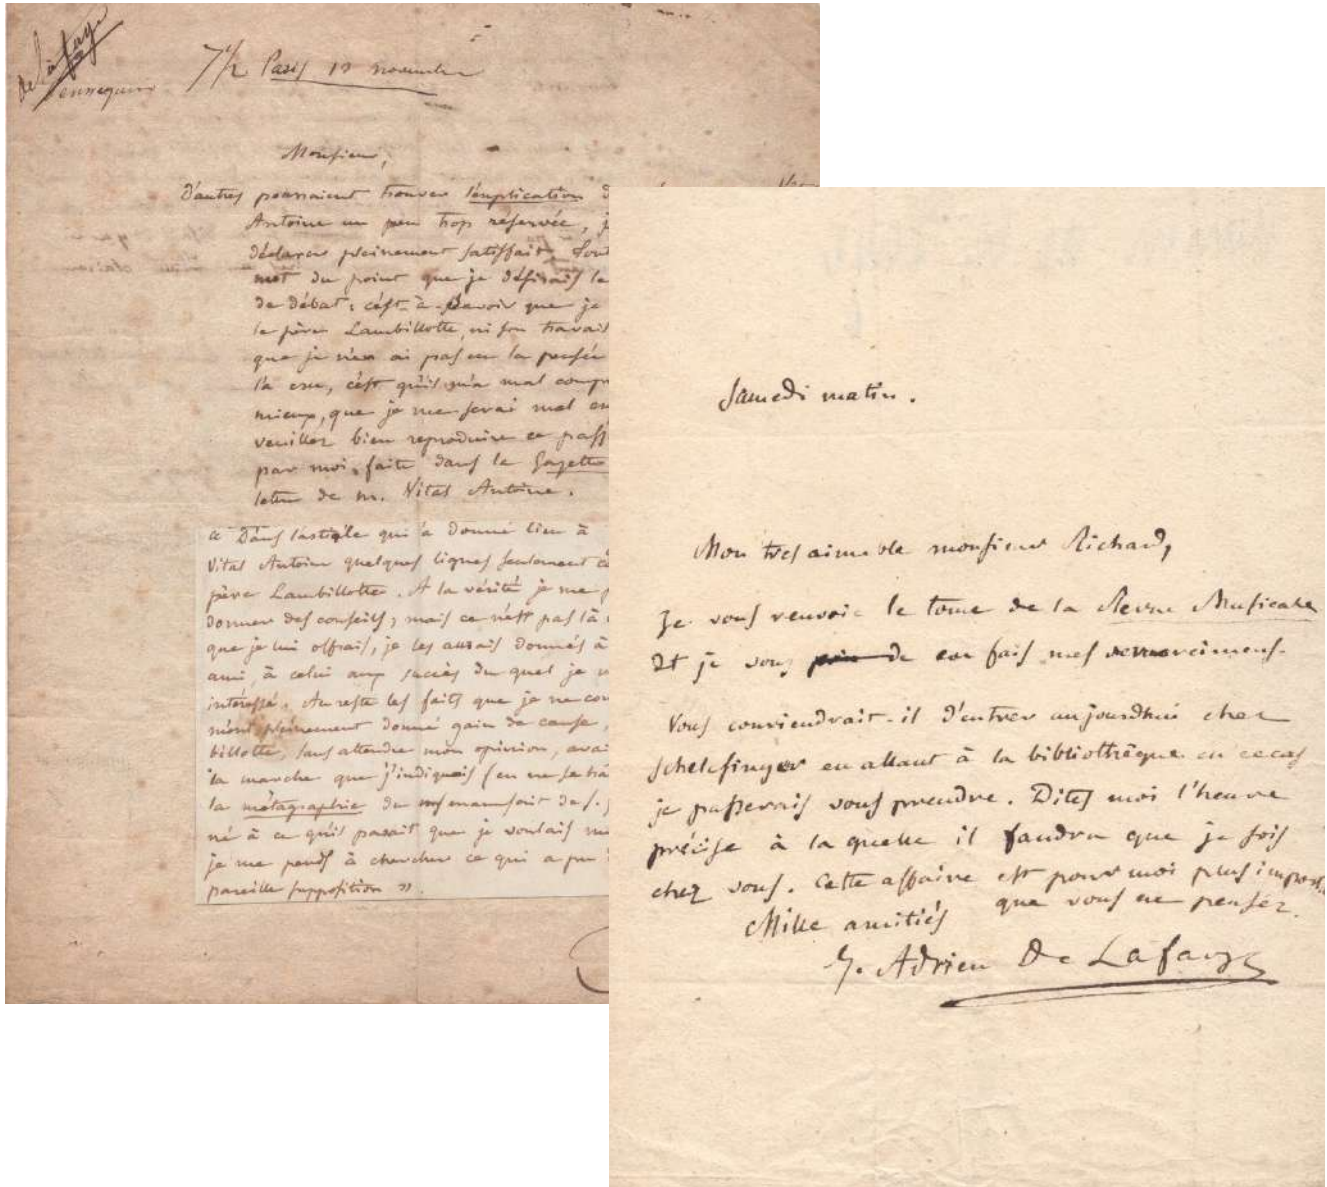 de la fage
7 1/2 Paris 10 novembre
Monsieur,
D'autres pourraient trouver l'explication d
Antoine un peu trop réservée, j
déclarer pleinement satisfait. Tout
mot du point que je désirais le
de débat; c'est-à-savoir que je
le père Lambillotte, ni son travail
que je n'en ai pas eu la pensée
l'a cru, c'est qu'il m'a mal comp
mieux, que je me serai mal ex
veuillez bien reproduire ce pass
par moi, faite dans la Gazette
lettre de m. Vital Antoine.
« Dans l'article qui a donné lieu à
Vital Antoine quelques lignes seulement c
père Lambillotte. A la vérité je me p
donner des conseils; mais ce n'est pas là
que je lui offrais, je les aurais donnés à
ami, à celui aux succès du quel je
intéressé. Au reste les faits que je ne con
m'ont pleinement donné gain de cause,
billotte, sans attendre mon opinion, avai
la marche que j'indiquais (en ne se
la métagraphie du manuscrit de s.
né à ce qu'il parait que je voulais
je me perds à chercher ce qui a pu
pareille supposition ».
Samedi matin.
Mon très aimable monsieur Richard,
Je vous renvoie le tome de la Revue Musicale
Et je vous en fais mes remerciemens.
Vous conviendrait-il d'entrer aujourdhui chez
Schelfinger en allant à la bibliothèque en ce cas
je passerais vous prendre. Dites moi l'heure
précise à la quelle il faudra que je sois
chez vous. Cette affaire est pour moi plus import.
que vous ne pensez.
Mille amitiés
J. Adrien De Lafage